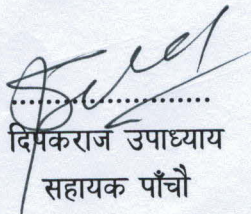 दिपकराज उपाध्याय
सहायक पाँचौ